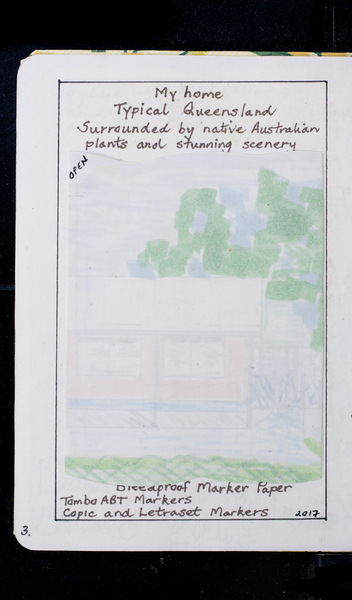 My home
Typical Queensland
Surrounded by native Australian
plants and stunning scenery
OPEN
Bleedproof Marker Paper
Tombo ABT Markers
Copic and Letraset Markers
2017
3.